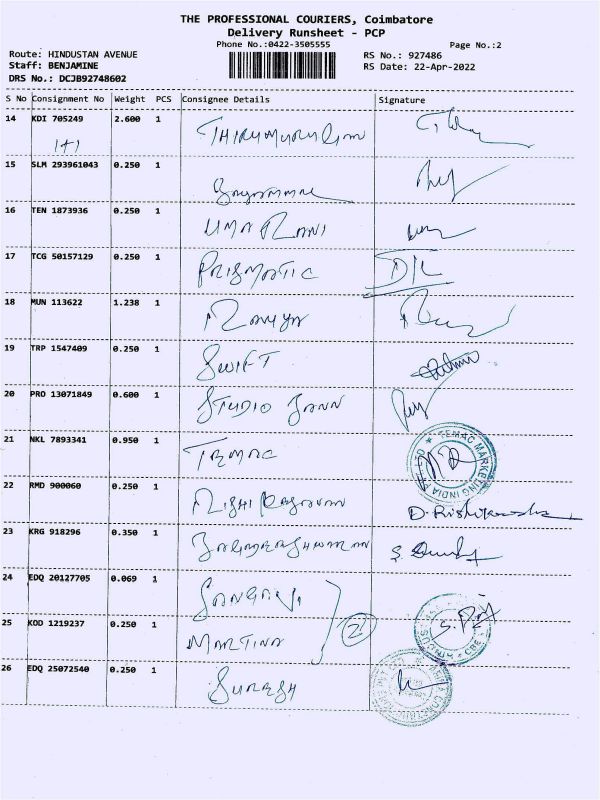 THE PROFESSIONAL COURIERS, Coimbatore
Delivery Runsheet - PCP
Phone No.:0422-3505555
Page No.:2
Route: HINDUSTAN AVENUE
RS No.: 927486
Staff: BENJAMINE
RS Date: 22-Apr-2022
DRS No.: DCJB92748602
S No Consignment No Weight PCS Consignee Details Signature
14 KDI 705249 2.600 1
1+1
15 SLM 293961043 0.250 1
16 TEN 1873936 0.250 1 UMA RANI
17 TCG 50157129 0.250 1 PRISMATIC D/L
18 MUN 113622 1.238 1 RAMYA
19 TRP 1547409 0.250 1 SWIFT
20 PRO 13071849 0.600 1 STUDIO
21 NKL 7893341 0.950 1 TEMAC
TEMAC MARKETING INDIA
22 RMD 900060 0.250 1 RISHI
23 KRG 918296 0.350 1
24 EDQ 20127705 0.069 1
25 KOD 1219237 0.250 1 MARTINA 2
26 EDQ 25072540 0.250 1 SURESH